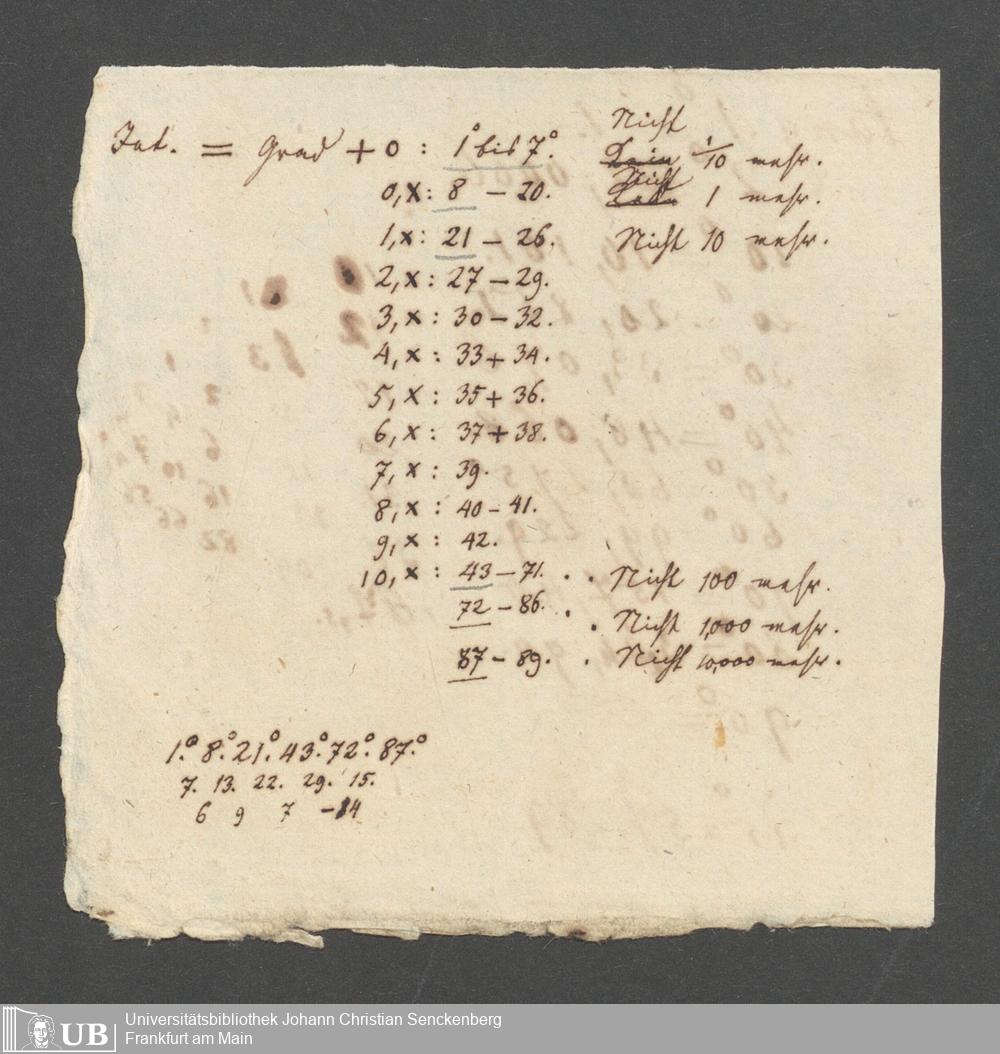 Int. = Grad + 0 : 1° bis 7°. Nicht 1/10 mehr.
0,x: 8 – 20. Nicht 1 mehr.
1,x: 21 – 26. Nicht 10 mehr.
2,x: 27 – 29.
3,x: 30 – 32.
4,x: 33 + 34.
5,x: 35 + 36.
6,x: 37 + 38.
7,x: 39.
8,x: 40 – 41.
9,x: 42.
10,x: 43 – 71. . . Nicht 100 mehr.
72 – 86. . . Nicht 1,000 mehr.
87 – 89. . Nicht 10,000 mehr.
1.° 8.° 21.° 43.° 72.° 87.°
7. 13. 22. 29. 15.
6 9 7 –14
UB
Universitätsbibliothek Johann Christian Senckenberg
Frankfurt am Main